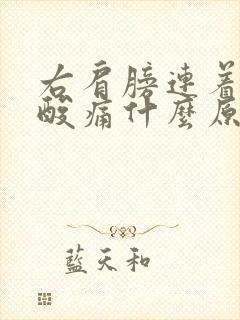 右肩膀連着
酸痛什麼原
藍天和